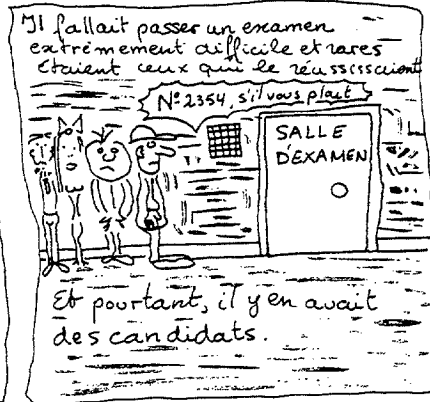 Il fallait passer un examen
extrêmement difficile et rares
étaient ceux qui le réussissaient
N° 2354, s'il vous plaît
SALLE
D'EXAMEN
Et pourtant, il y en avait
des candidats.